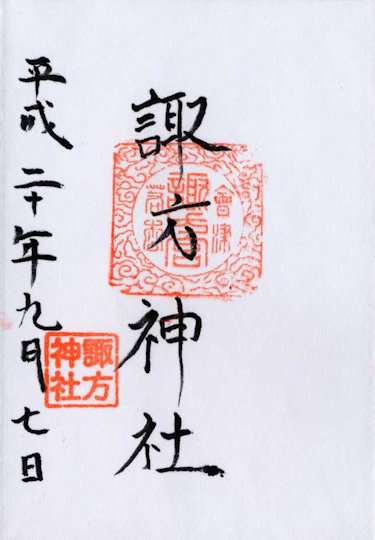 諏方神社
平成二十年九月七日
會津
若松
諏方
神社